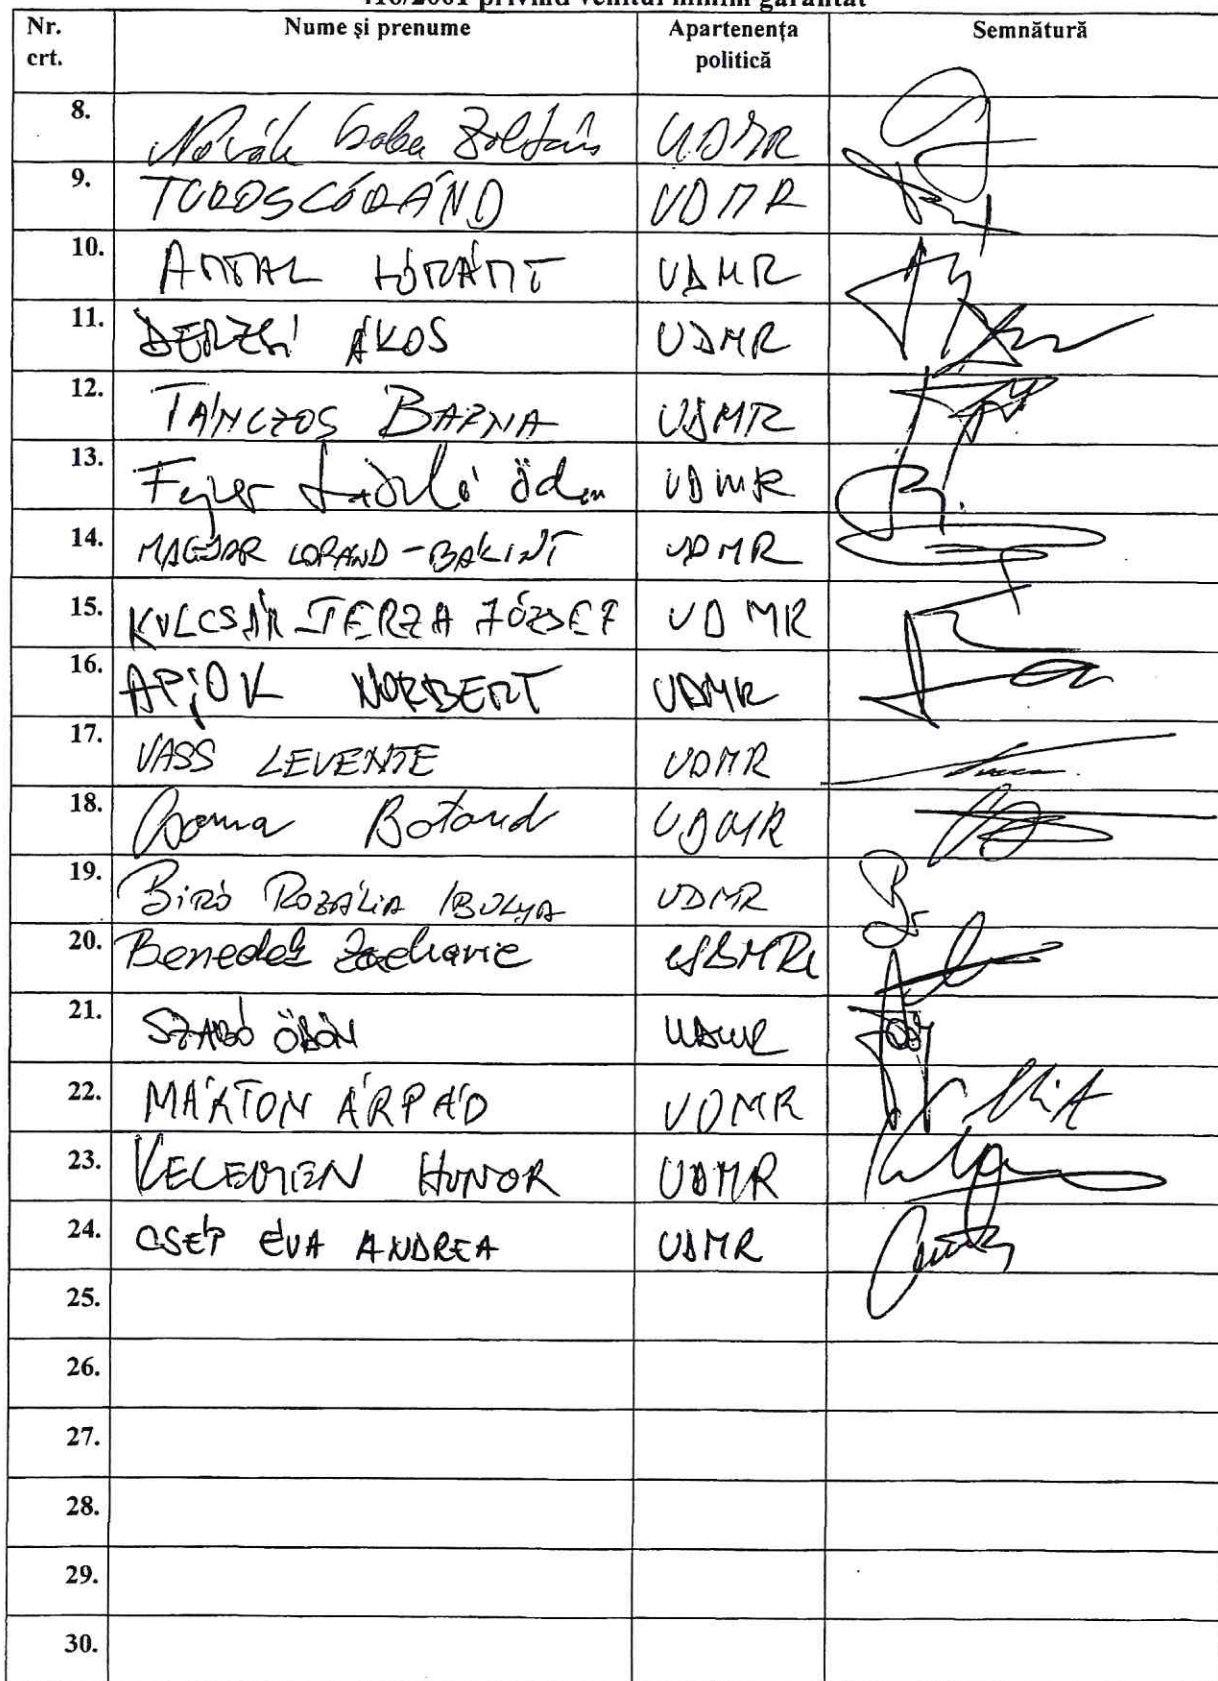 416/2001 privind venitul minim garantat
Nr. crt. Nume și prenume Apartenența politică Semnătură
8. Novák Csaba Zoltán UDMR
9. TUROS LÓRÁND UDMR
10. ANTAL LÓRÁNT UDMR
11. DERZSI ÁKOS UDMR
12. TÁNCZOS BARNA UDMR
13. Fejér László Ödön UDMR
14. MAGYAR LORAND-BALINT UDMR
15. KULCSÁR TERZA JÓZSEF UDMR
16. APJOK NORBERT UDMR
17. VASS LEVENTE UDMR
18. Csoma Botond UDMR
19. BIRÓ ROZÁLIA IBOLYA UDMR
20. Benedek Zacharie UDMR
21. SZABÓ ÖDÖN UDMR
22. MÁRTON ÁRPÁD UDMR
23. KELEMEN HUNOR UDMR
24. CSÉP ÉVA ANDREA UDMR
25.
26.
27.
28.
29.
30.